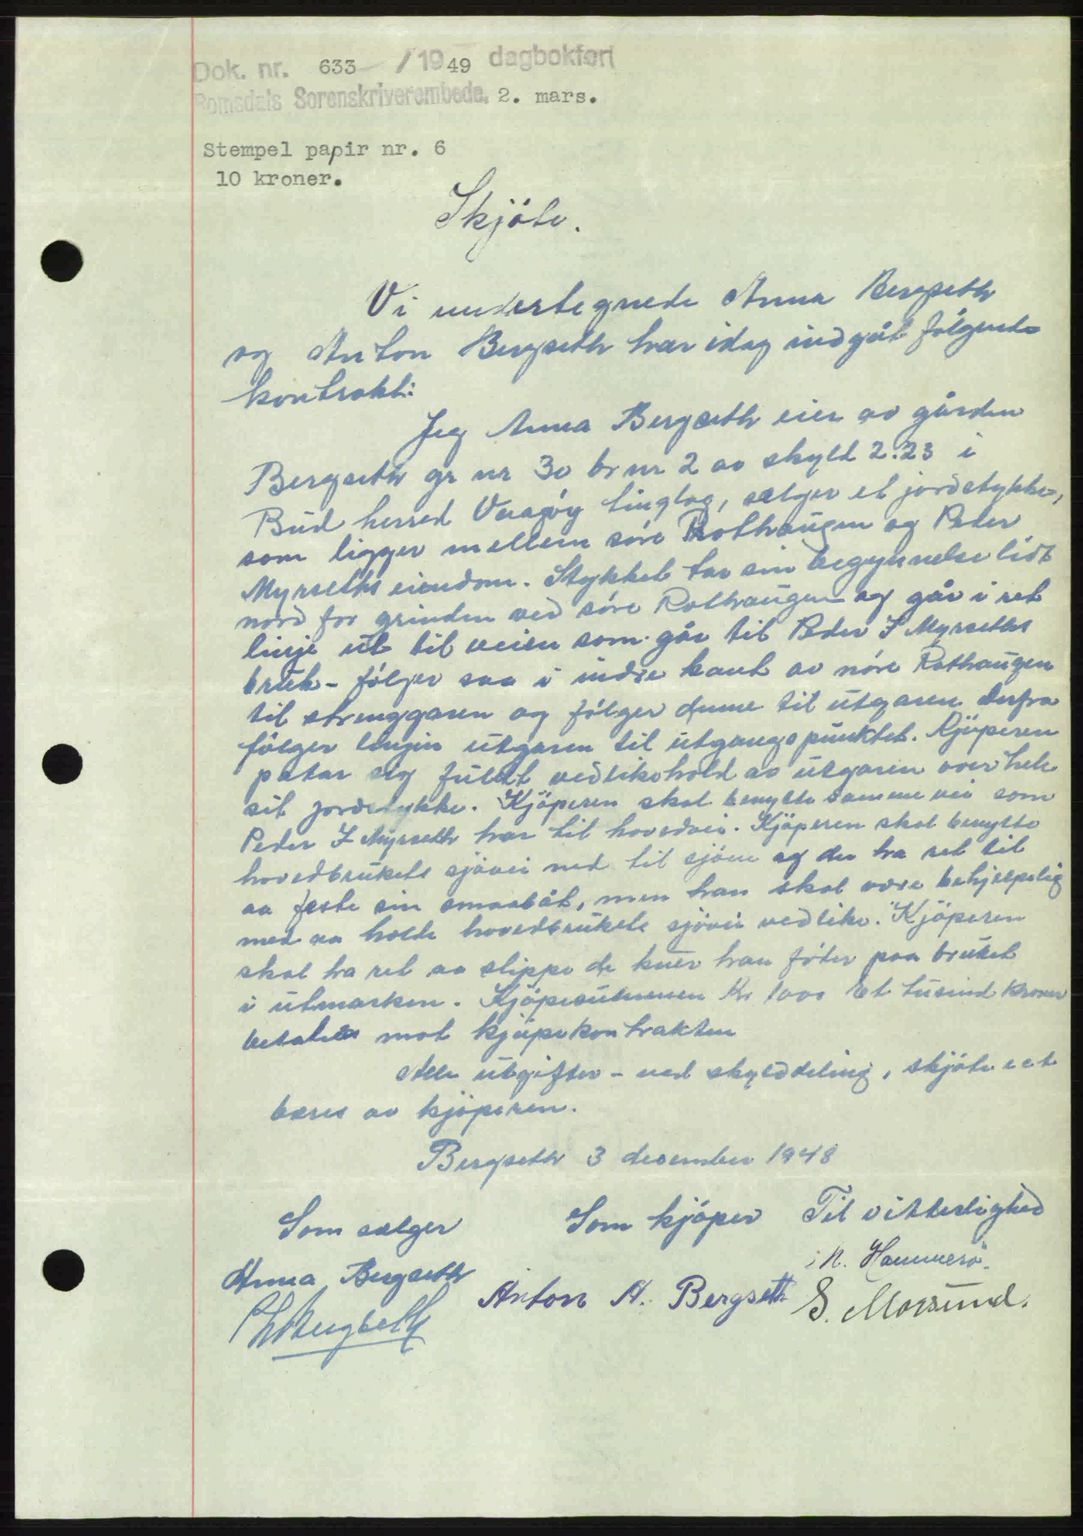 Dok. nr. 633 / 1949 dagbokført
Romsdals Sorenskriverembede, 2. mars.
Stempel papir nr. 6
10 kroner.
Skjöte.
Vi undertegnede Anna Bergseth
og Anton Bergseth har idag indgåt følgende
kontrakt:
Jeg Anna Bergseth eier av gården
Bergseth gr nr 30 br nr 2 av skyld 2.23 i
Bud herred tinglag, sælger et jordstykke,
som ligger mellem søre Rothaugen og Peder
Myrseths eiendom. Stykket tar sin begynnelse lidt
nord for grinden ved søre Rothaugen og går i ret
linje ut til veien som går til Peder I Myrseths
bruk - følger saa i indre kant av nóre Rothaugen
til strenggaren og følger denne til utgaren derfra
følger linjen utgaren til utgangspunktet. Kjöperen
patar sig fuldt vedlikehold av utgaren over hele
sit jordstykke. Kjöperen skal benytte samme vei som
Peder I Myrseth har til hovedvei. Kjöperen skal benytte
hovedbrukets sjövei ned til sjöen og der ha ret til
aa feste sin smaabåt, men han skal være behjelpelig
med aa holde hovedbrukets sjövei vedlike. Kjöperen
skal ha ret aa slippe de kuer han föder paa bruket
i utmarken. Kjöpesummen Kr 1000 Et tusind kroner
betales mot kjöpekontrakten
Alle utgifter - ved skylddeling, skjöte ect
bæres av kjöperen.
Bergseth 3 december 1948
Som sælger Som kjöper Til vitterlighed
Anna Bergseth N. Hammerö.
Anton A. Bergseth S. Morsund.